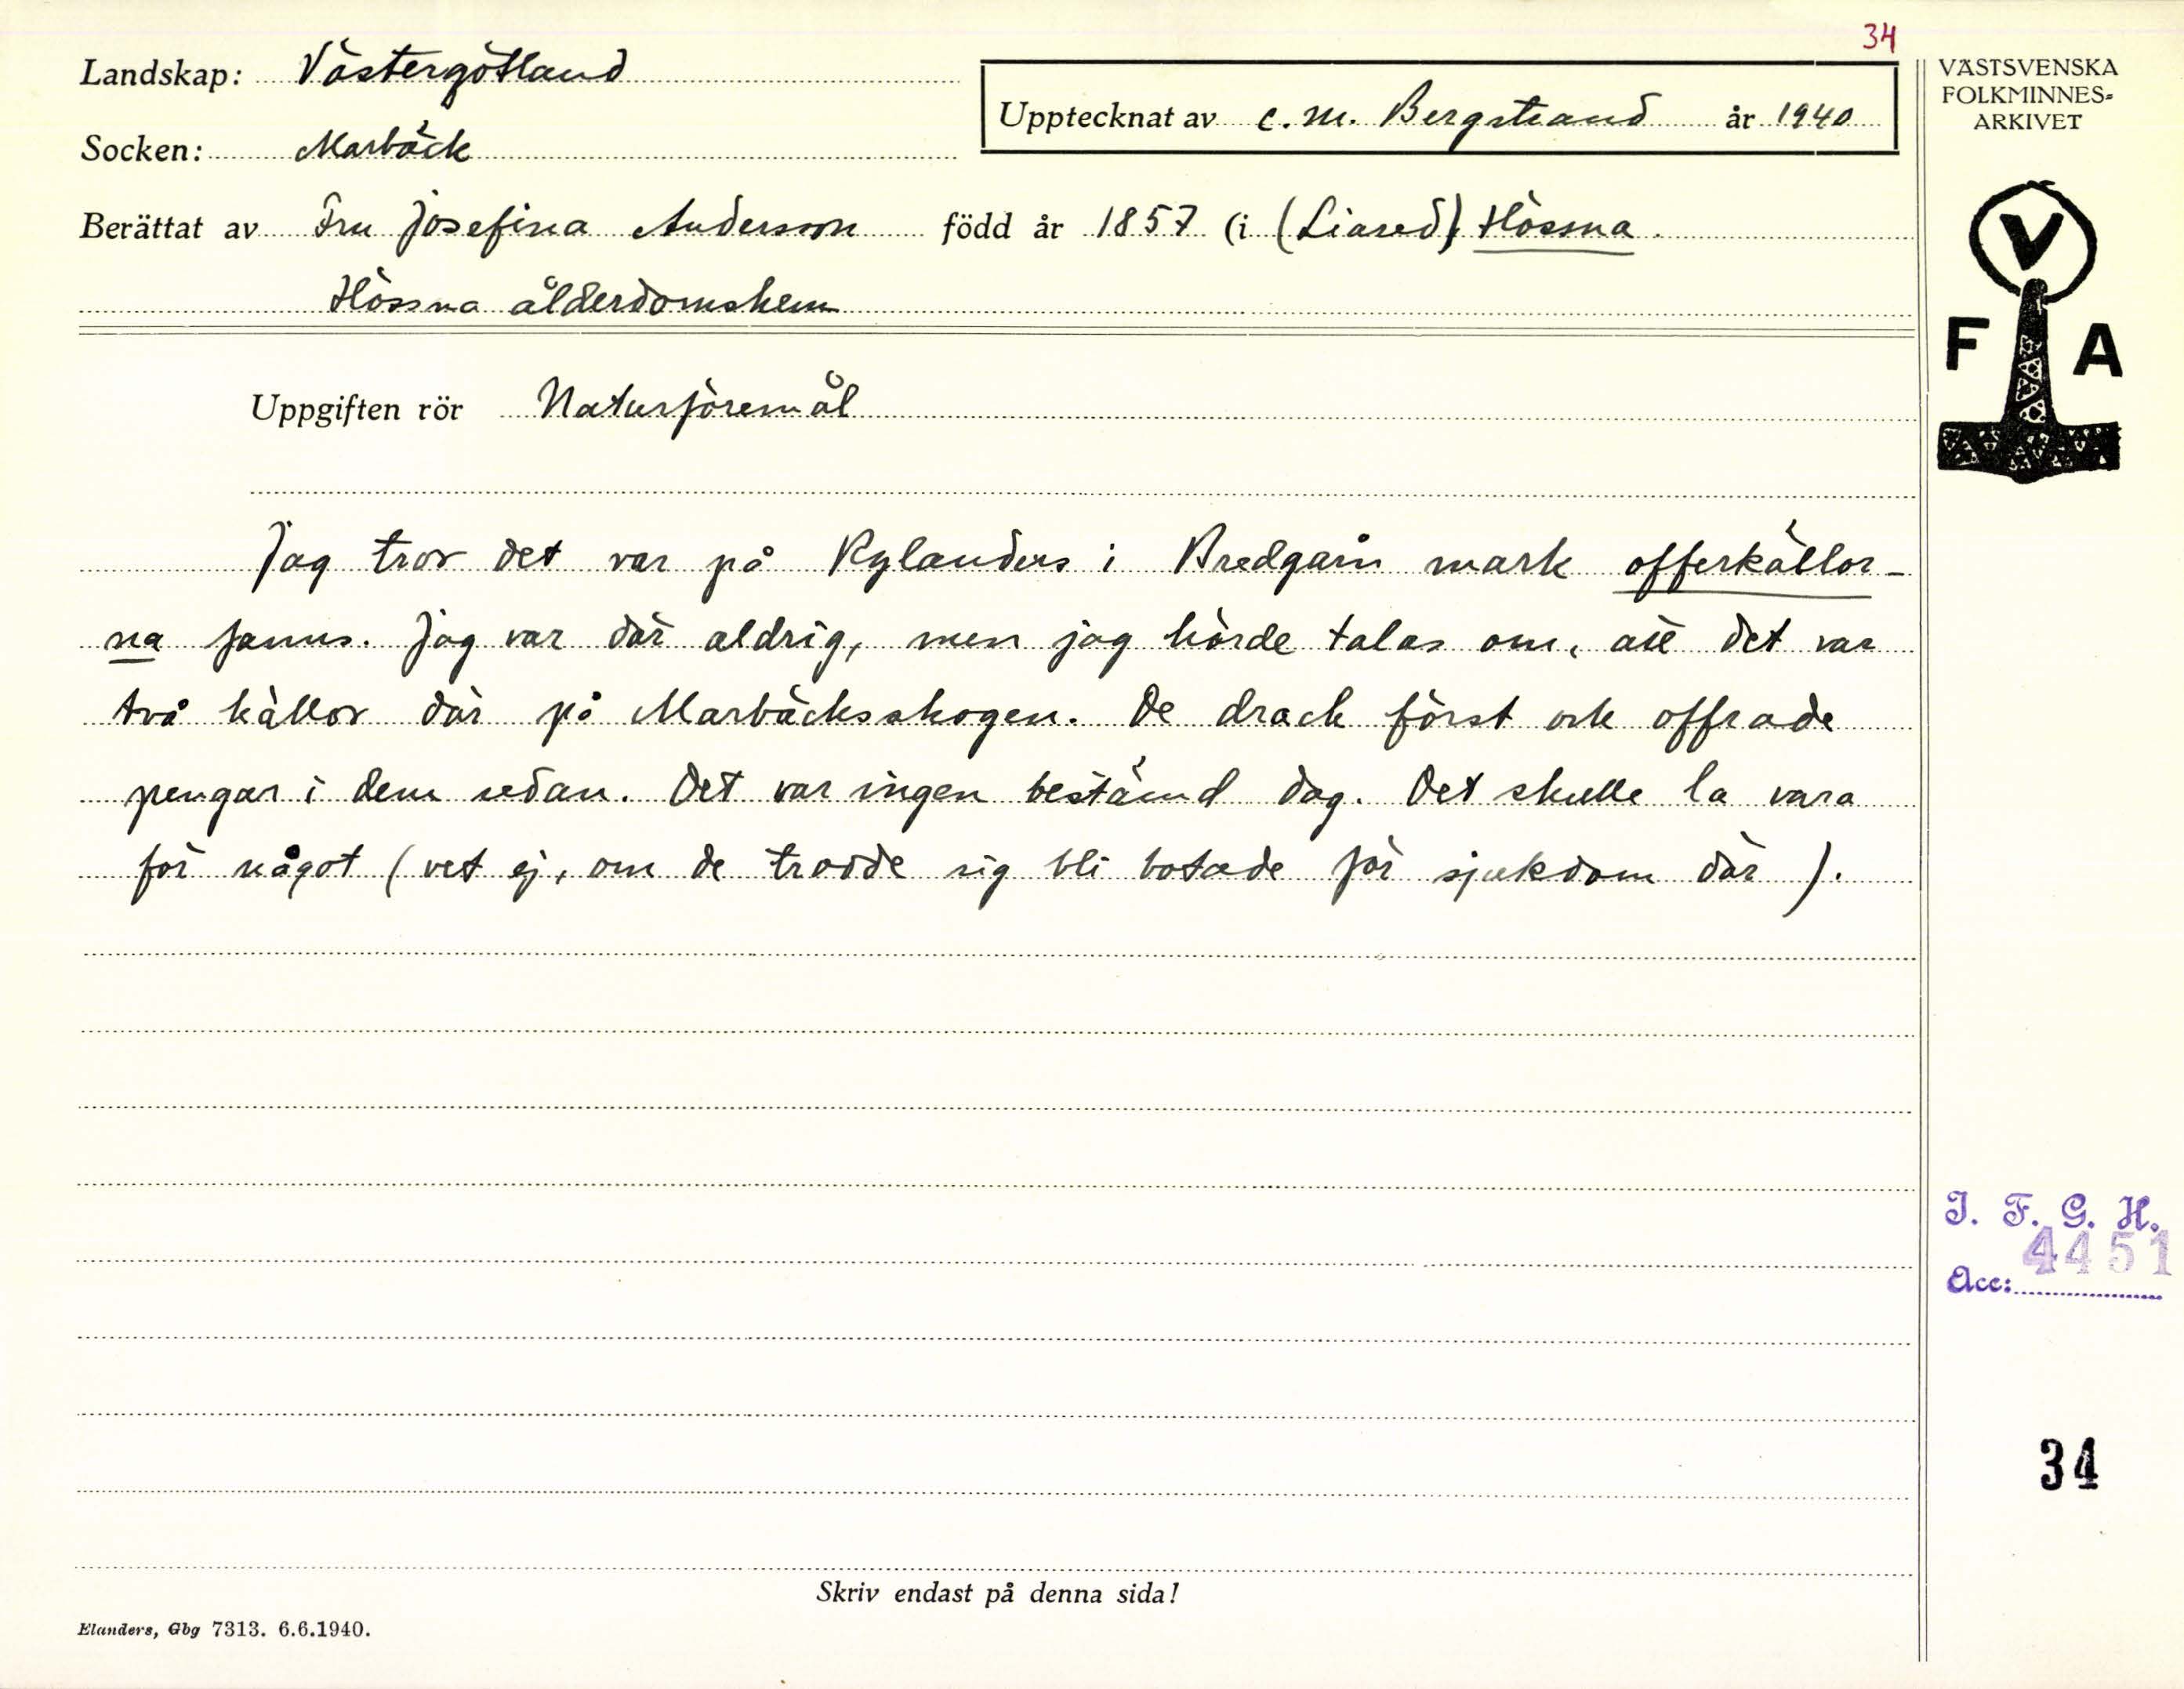 34
Landskap: Västergötland
Upptecknat av C. M. Bergstrand år 1940
Socken: Marbäck
Berättat av Fru Josefina Andersson född år 1857 (i (Liared) Hössna.
Hössna ålderdomshem
VÄSTSVENSKA
FOLKMINNES=
ARKIVET
V
F A
Uppgiften rör Naturföremål
Jag tror det var på Rylanders i Bredgårn mark offerkällor-
na fanns. Jag var där aldrig, men jag hörde talas om, att det var
två källor där på Marbäcksskogen. De drack först och offrade
pengar i dem sedan. Det var ingen bestämd dag. Det skulle la vara
för något (vet ej, om de trodde sig bli botade för sjukdom där).
I. F. G. H.
4451
Acc:
34
Skriv endast på denna sida!
Elanders, Gbg 7313. 6.6.1940.